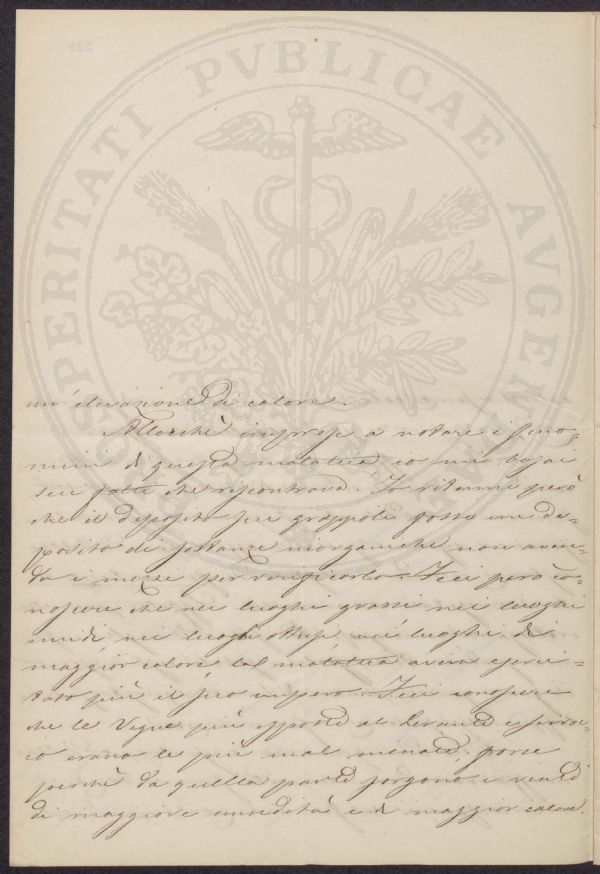 PROSPERITATI PVBLICAE AVGENDAE
un' elevazione di calore.
Allorchè impresi a notare i feno-
mini di questa malattia io mi basai
sui fatti che riscontrava. Io ritenni però
che il deposito sui grappoli fosse un de-
posito di sostanze inorganiche non aven-
do i mezzi per verificarlo. Feci però co-
noscere che nei luoghi grassi nei luoghi
umidi, nei luoghi nei luoghi di
maggior calore, tal malattia aveva eserci-
tato più il suo impero. Feci conoscere
che le Vigne più esposte al Levante e siroc-
co erano le più mal menate, forse
perchè da quella parte sorgono i venti
di maggiore umidità e di maggior calore.